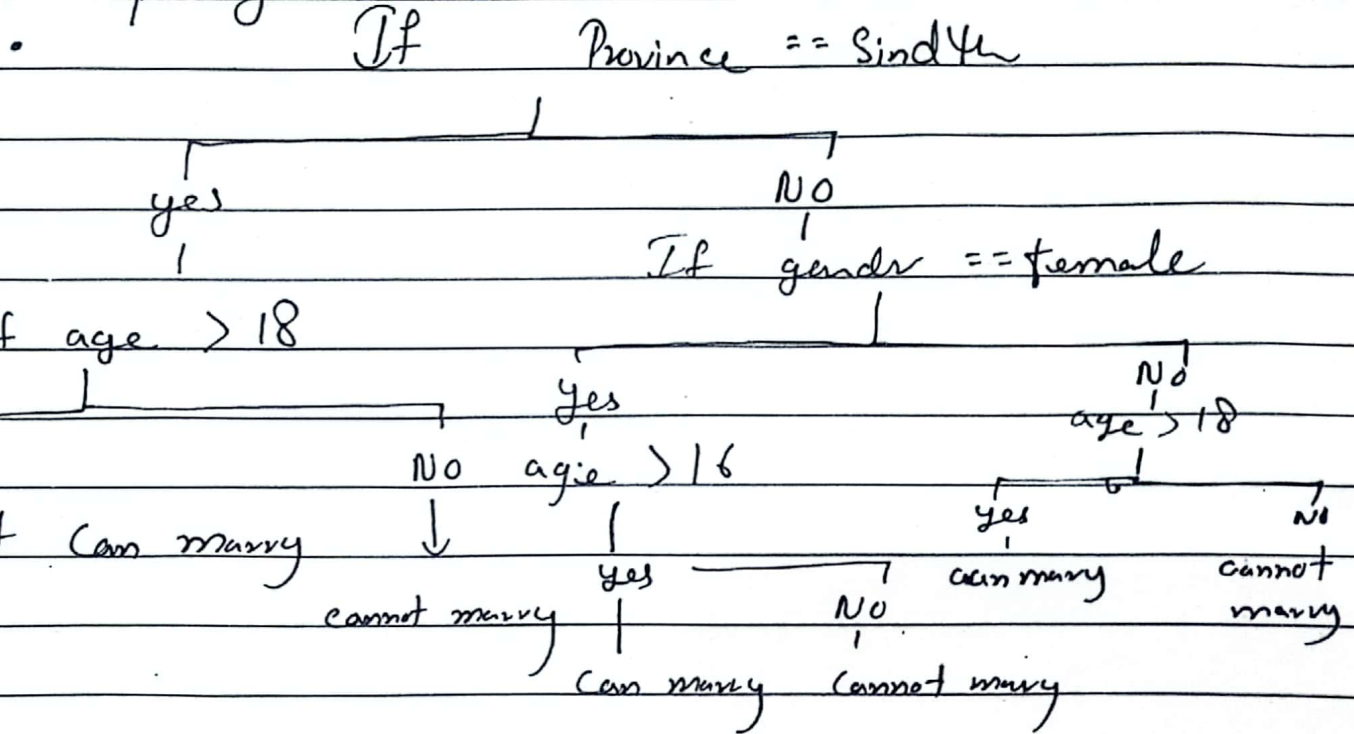 If Province == Sindh
yes NO
If gender == female
f age > 18
yes No
age > 18
NO agie > 16
yes No
Can marry
yes can marry cannot
cannot marry NO marry
Can marry Cannot marry